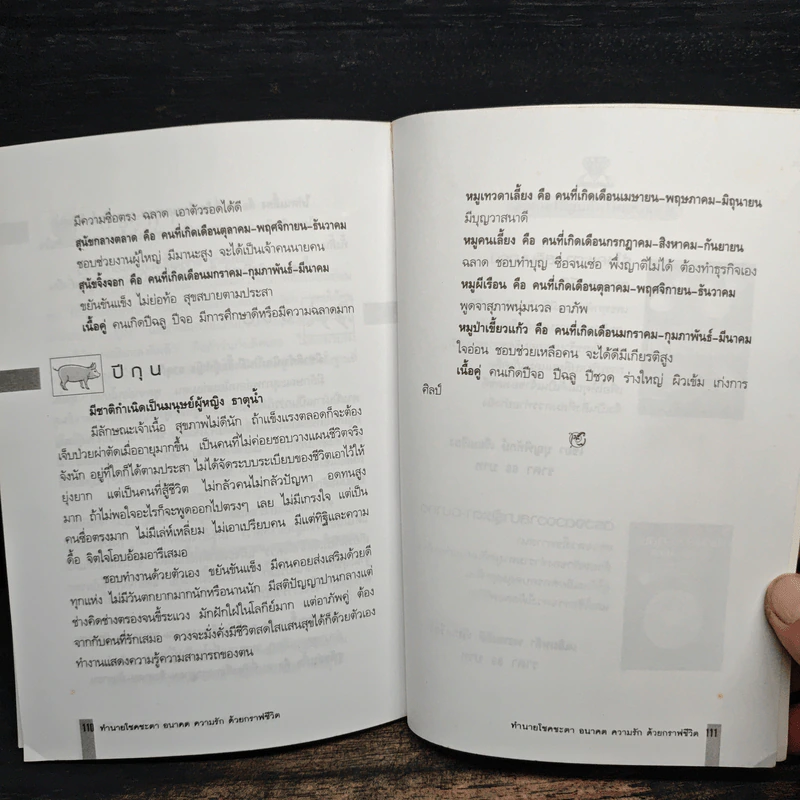 มีความซื่อตรง ฉลาด เอาตัวรอดได้ดี
สุนัขกลางตลาด คือ คนที่เกิดเดือนตุลาคม-พฤศจิกายน-ธันวาคม
ชอบช่วยงานผู้ใหญ่ มีมานะสูง จะได้เป็นเจ้าคนนายคน
สุนัขจิ้งจอก คือ คนที่เกิดเดือนมกราคม-กุมภาพันธ์-มีนาคม
ขยันขันแข็ง ไม่ย่อท้อ สุขสบายตามประสา
เนื้อคู่ คนเกิดปีฉลู ปีจอ มีการศึกษาดีหรือมีความฉลาดมาก
ปีกุน
มีชาติกำเนิดเป็นมนุษย์ผู้หญิง ธาตุน้ำ
มีลักษณะเจ้าเนื้อ สุขภาพไม่ดีนัก ถ้าแข็งแรงตลอดก็จะต้อง
เจ็บป่วยผ่าตัดเมื่ออายุมากขึ้น เป็นคนที่ไม่ค่อยชอบวางแผนชีวิตจริง
จังนัก อยู่ที่ใดก็ได้ตามประสา ไม่ได้จัดระบบระเบียบของชีวิตเอาไว้ให้
ยุ่งยาก แต่เป็นคนที่สู้ชีวิต ไม่กลัวคนไม่กลัวปัญหา อดทนสูง
มาก ถ้าไม่พอใจอะไรก็จะพูดออกไปตรงๆ เลย ไม่มีเกรงใจ แต่เป็น
คนซื่อตรงมาก ไม่มีเล่ห์เหลี่ยม ไม่เอาเปรียบคน มีแต่ทิฐิและความ
ดื้อ จิตใจโอบอ้อมอารีเสมอ
ชอบทำงานด้วยตัวเอง ขยันขันแข็ง มีคนคอยส่งเสริมด้วยดี
ทุกแห่ง ไม่มีวันตกยากมากนักหรือนานนัก มีสติปัญญาปานกลางแต่
ช่างคิดช่างตรองจนขี้ระแวง มักฝักใฝ่ในโลกีย์มาก แต่อาภัพคู่ ต้อง
จากกับคนที่รักเสมอ ดวงจะมั่งคั่งมีชีวิตสดใสแสนสุขได้ก็ด้วยตัวเอง
ทำงานแสดงความรู้ความสามารถของตน
110 ทำนายโชคชะตา อนาคต ความรัก ด้วยกราฟชีวิต
หมูเทวดาเลี้ยง คือ คนที่เกิดเดือนเมษายน-พฤษภาคม-มิถุนายน
มีบุญวาสนาดี
หมูคนเลี้ยง คือ คนที่เกิดเดือนกรกฎาคม-สิงหาคม-กันยายน
ฉลาด ชอบทำบุญ ซื่อจนเซ่อ พึ่งญาติไม่ได้ ต้องทำธุรกิจเอง
หมูผีเรือน คือ คนที่เกิดเดือนตุลาคม-พฤศจิกายน-ธันวาคม
พูดจาสุภาพนุ่มนวล อาภัพ
หมูป่าเขี้ยวแก้ว คือ คนที่เกิดเดือนมกราคม-กุมภาพันธ์-มีนาคม
ใจอ่อน ชอบช่วยเหลือคน จะได้ดีมีเกียรติสูง
เนื้อคู่ คนเกิดปีจอ ปีฉลู ปีชวด ร่างใหญ่ ผิวเข้ม เก่งการ
ศิลป์
ทำนายโชคชะตา อนาคต ความรัก ด้วยกราฟชีวิต 111